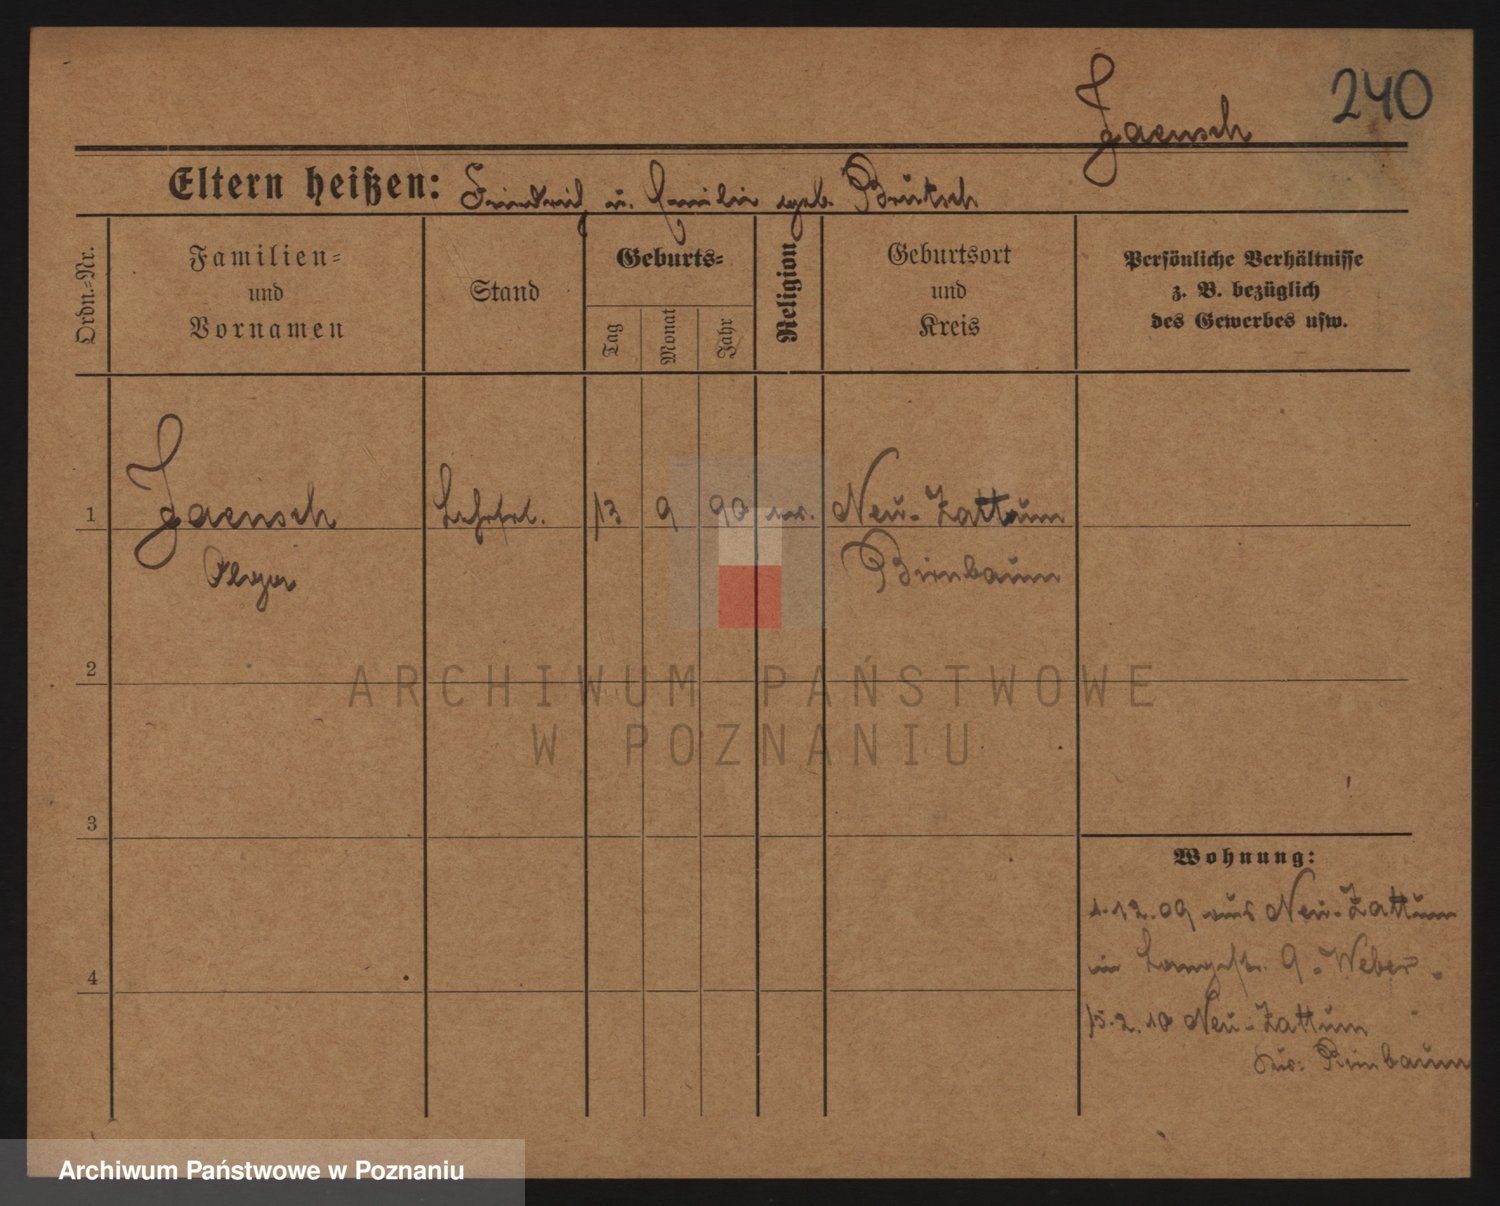 240
Jaensch
Eltern heißen: Friedrich u. Emilie geb. Brütsch
Ordn.-Nr.
Familien-
und
Vornamen
Stand
Geburts-
Tag
Monat
Jahr
Religion
Geburtsort
und
Kreis
Persönliche Verhältnisse
z. B. bezüglich
des Gewerbes usw.
1 Jaensch 13 9 90 ev. Neu-Zattum
Birnbaum
2
3
4
Wohnung:
1.12.09 aus Neu-Zattum
in Langestr. 9. Weber.
15.2.10 Neu-Zattum
Birnbaum
ARCHIWUM PAŃSTWOWE
W POZNANIU
Archiwum Państwowe w Poznaniu